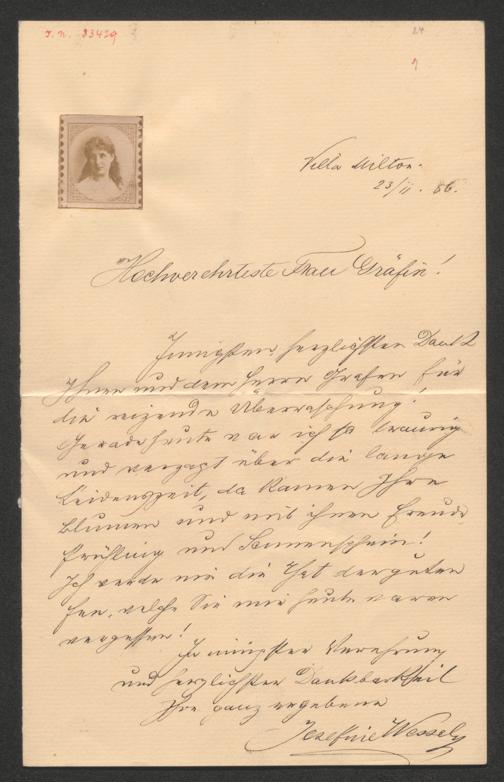 J. N. 83429
24
Villa Milton.
23/II. 86.
Hochverehrteste Frau Gräfin!
Innigsten, herzlichsten Dank
Ihnen und dem Herrn Grafen für
die reizende Überraschung!
Gerade heute war ich so traurig
und verzagt über die lange
Leidenszeit, da kamen Ihre
Blumen und mit ihnen Freude
Frühling und Sonnenschein!
Ich werde nie die That der guten
Feen, welche Sie mir heute waren
vergessen!
In innigster Verehrung
und herzlichster Dankbarkeit
Ihre ganz ergebene
Josefine Wessely